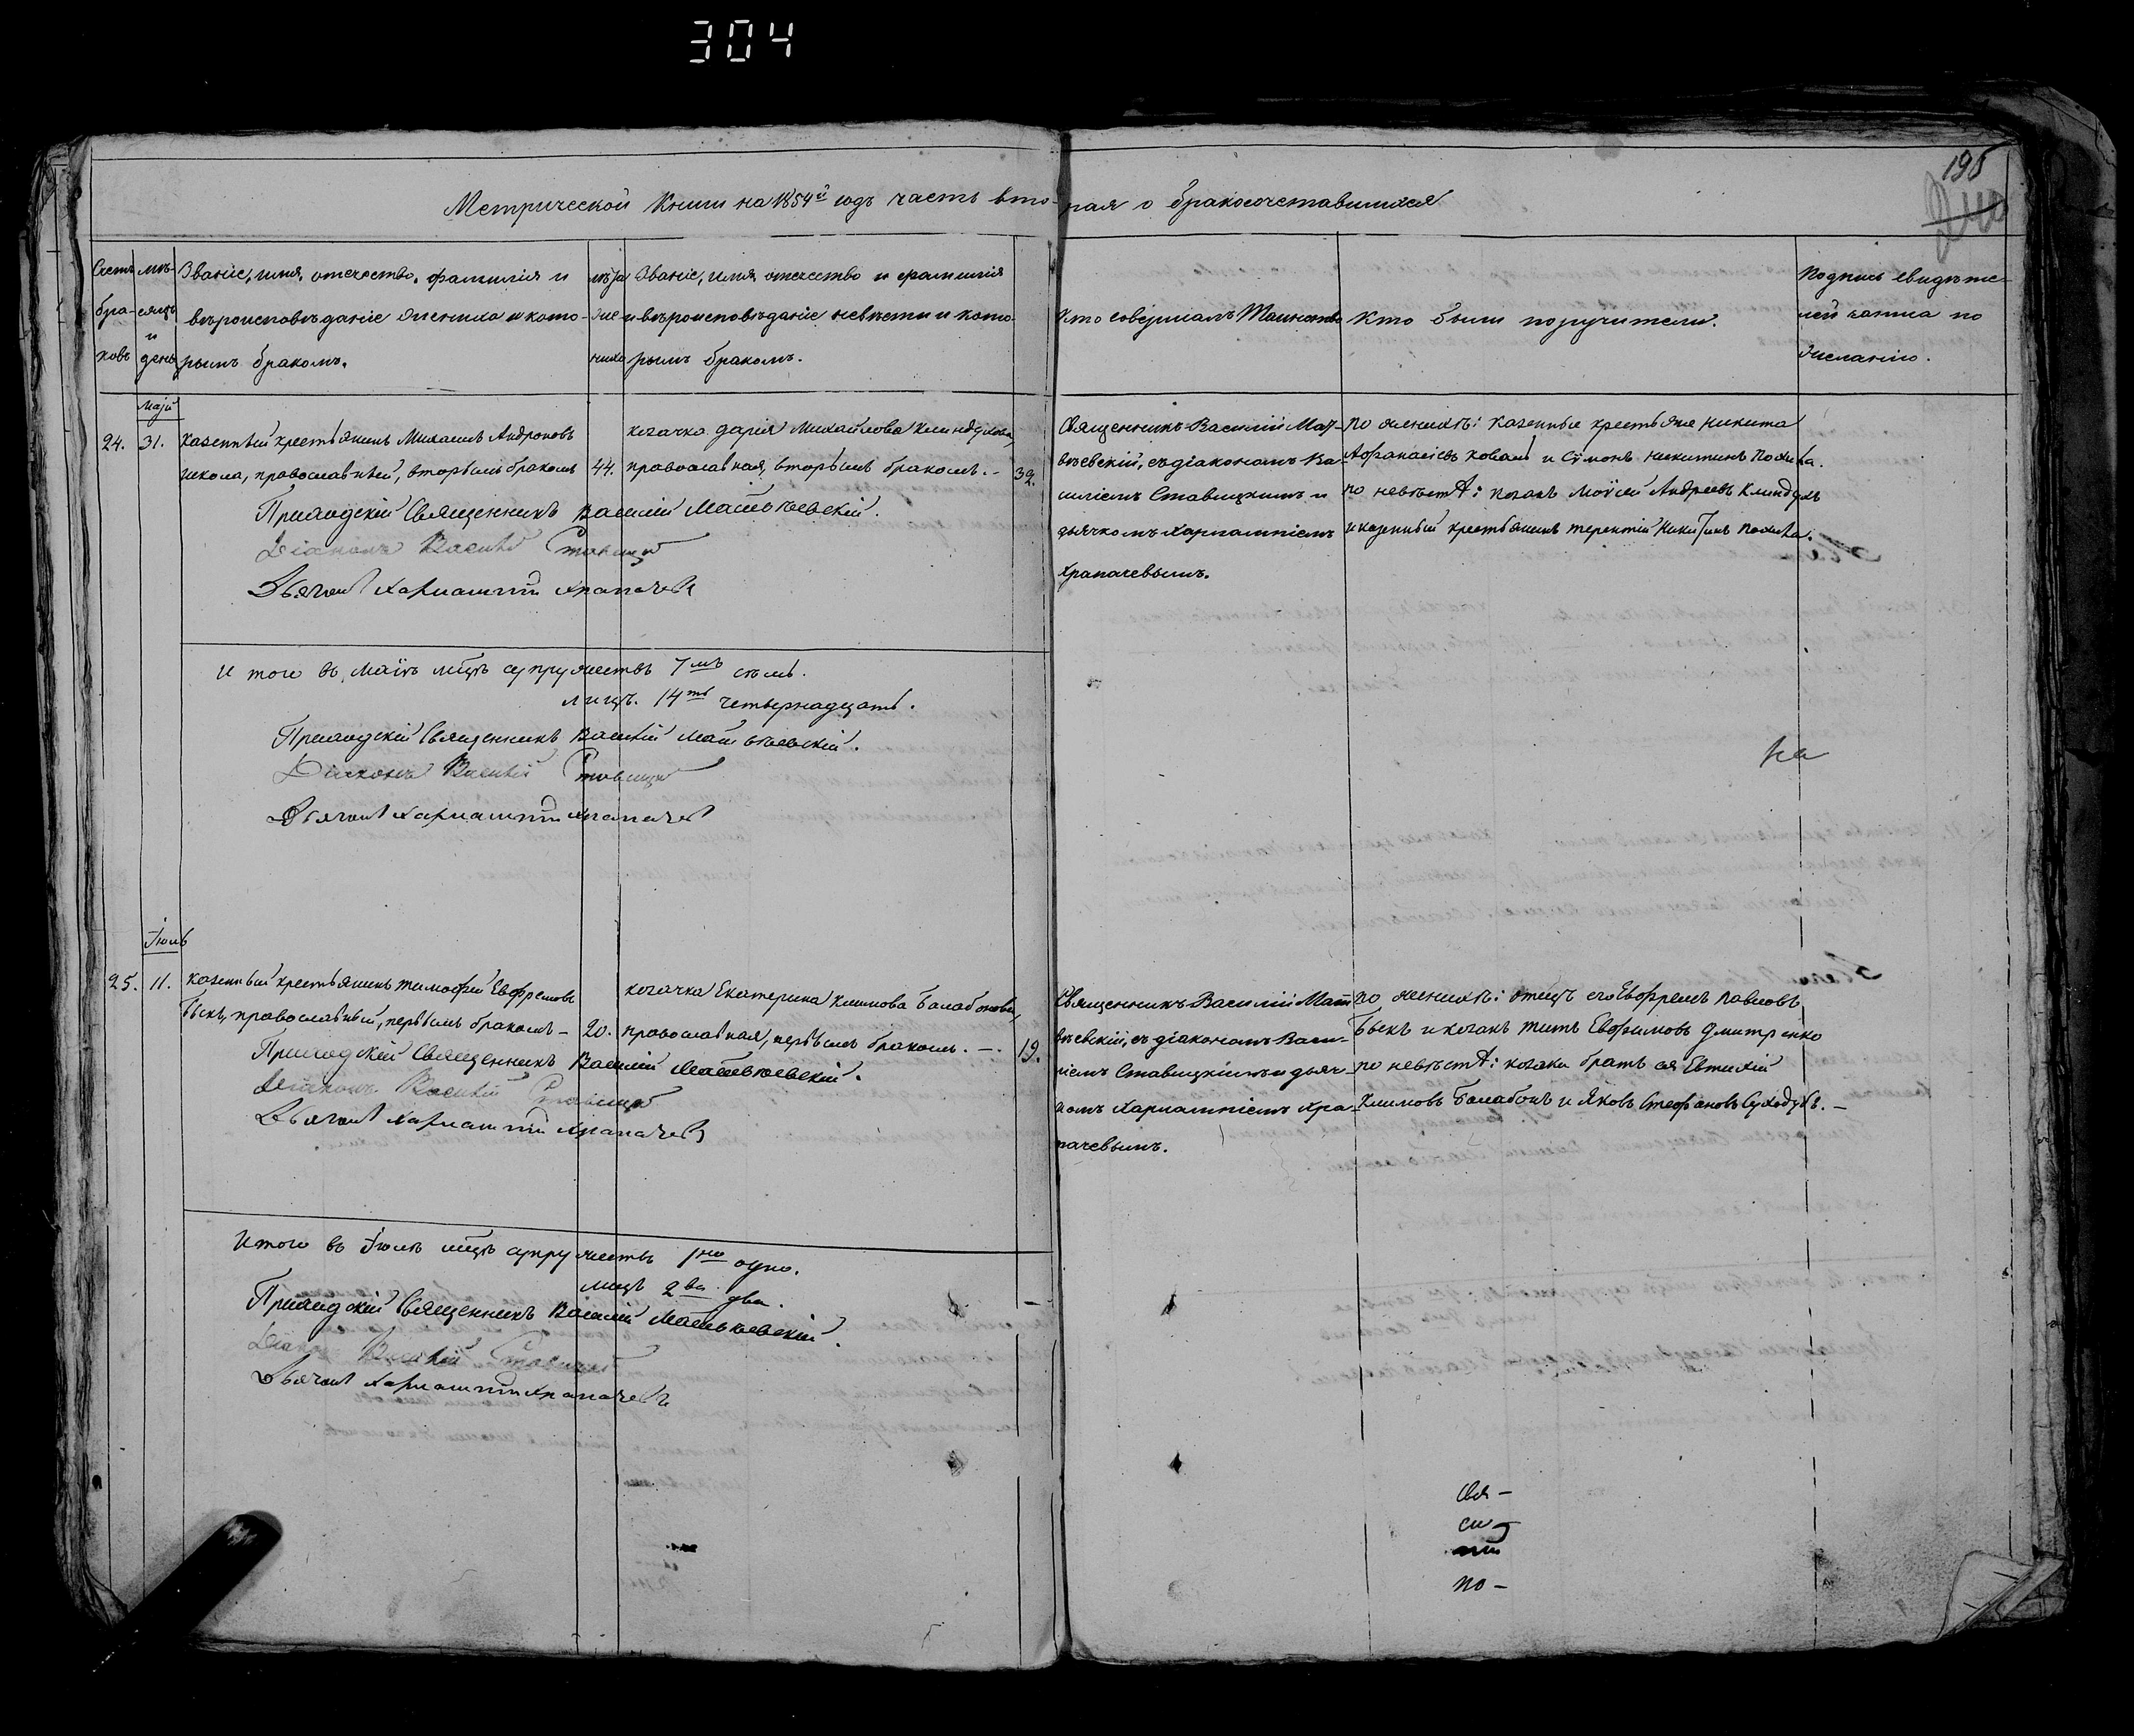 304
195
Метрической Книги на 1854й годъ часть вторая о бракосочетавшихся
Счетъ браковъ
мѣсяцъ и день
Званіе, имя, отечество, фамилія и
вѣроисповѣданіе жениха и кото-
рымъ бракомъ.
лѣта жениха
Званіе, имя, отечество и фамилія
и вѣроисповѣданіе невѣсты и кото-
рымъ бракомъ.
Кто совершалъ Таинство
Кто были поручители.
Подпись свидѣте-
лей записа по
желанію.
Маій
24. 31.
казенный крестьянинъ Михаилъ Андроновъ
православный, вторымъ бракомъ
44.
козачка Дарія Михайлова
православная, вторымъ бракомъ. –
32.
Священникъ Василій Мат-
вѣевскій, съ діакономъ Ва-
силіемъ Ставицкимъ и
дьячкомъ Харлампіемъ
Храпачевымъ.
по женихѣ: казенные крестьяне Никита
Афанасіевъ Коваль и Сѵмонъ Никитинъ
по невѣстѣ: козакъ Моѵсей Андреевъ
и казенный крестьянинъ Терентій Никитинъ
Приходскій Священникъ Василій Матвѣевскій.
Діаконъ Василій Ставицкій
Дьячокъ Харлампій Храпачевъ
И того въ Маіѣ мцѣ супружествъ 7мь семь.
лицъ. 14ть четырнадцать.
Приходскій Священникъ Василій Матвѣевскій.
Діаконъ Василій Ставицкій
Дьячокъ Харлампій Храпачевъ
на
Іюль
25. 11.
казенный крестьянинъ Тимофей Евфремовъ
Быкъ, православный, первымъ бракомъ –
20.
козачка Екатерина Климова Балабонова,
православная, первымъ бракомъ. –
19.
Священникъ Василій Мат-
вѣевскій, съ діакономъ Васи-
ліемъ Ставицкимъ и дьяч-
комъ Харлампіемъ Хра-
пачевымъ.
по женихѣ: отецъ его Евфремъ Павловъ
Быкъ и козакъ Титъ Евфимовъ Дмитренко
по невѣстѣ: козаки братъ ея Евтихій
Климовъ Балабонъ и Яковъ Стефановъ Суходубъ. –
Приходскій Священникъ Василій Матвѣевскій.
Діаконъ Василій Ставицкій
Дьячокъ Харлампій Храпачевъ
Итого въ Іюлѣ мцѣ супружествъ 1но одно.
лицъ 2ва два.
Приходскій Священникъ Василій Матвѣевскій.
Діаконъ Василій Ставицкій
Дьячокъ Харлампій Храпачевъ
свя –
си
по –